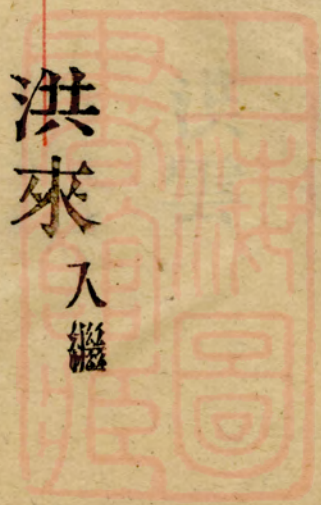 洪來入繼
上海圖書館藏